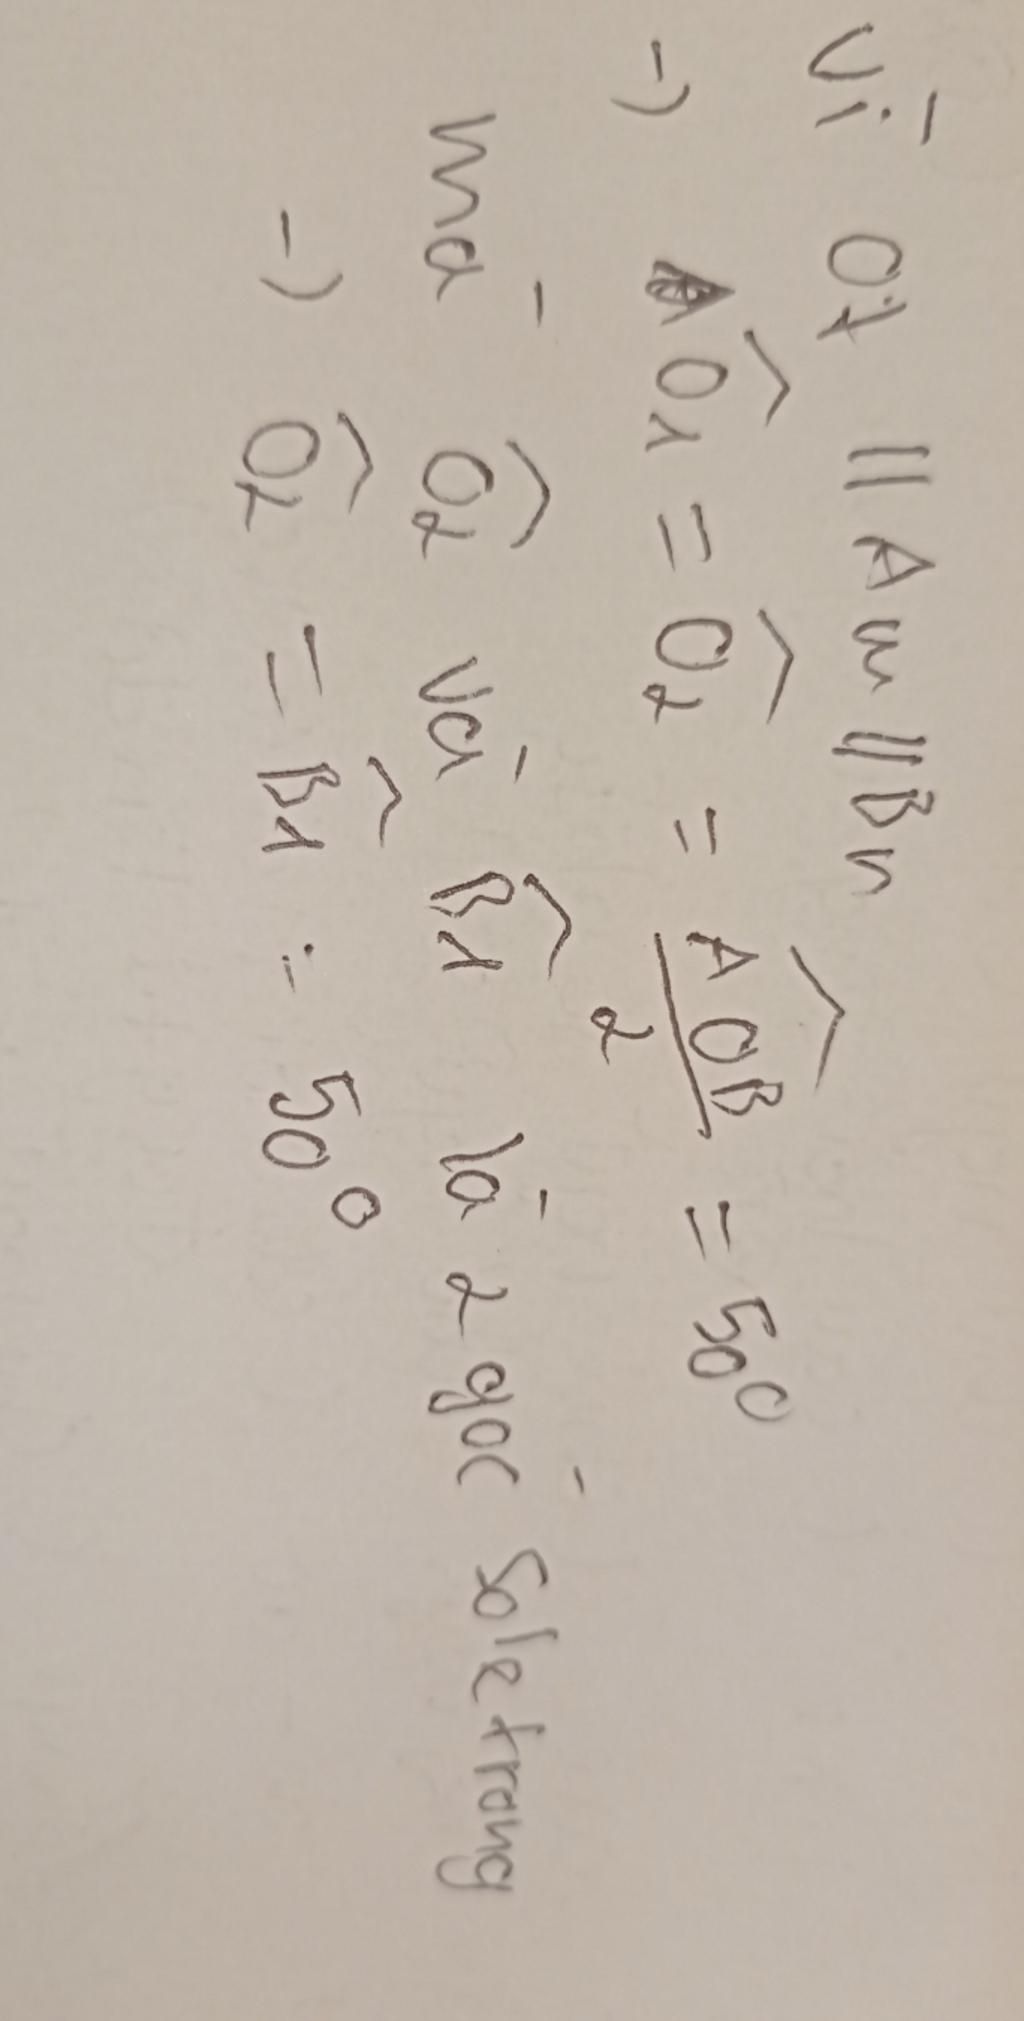 Vì Ot // Am // Bn
-> Ô1 = Ô2 = AOB/2 = 50°
mà Ô2 và B̂1 là 2 góc sole trong
-> Ô2 = B̂1 = 50°